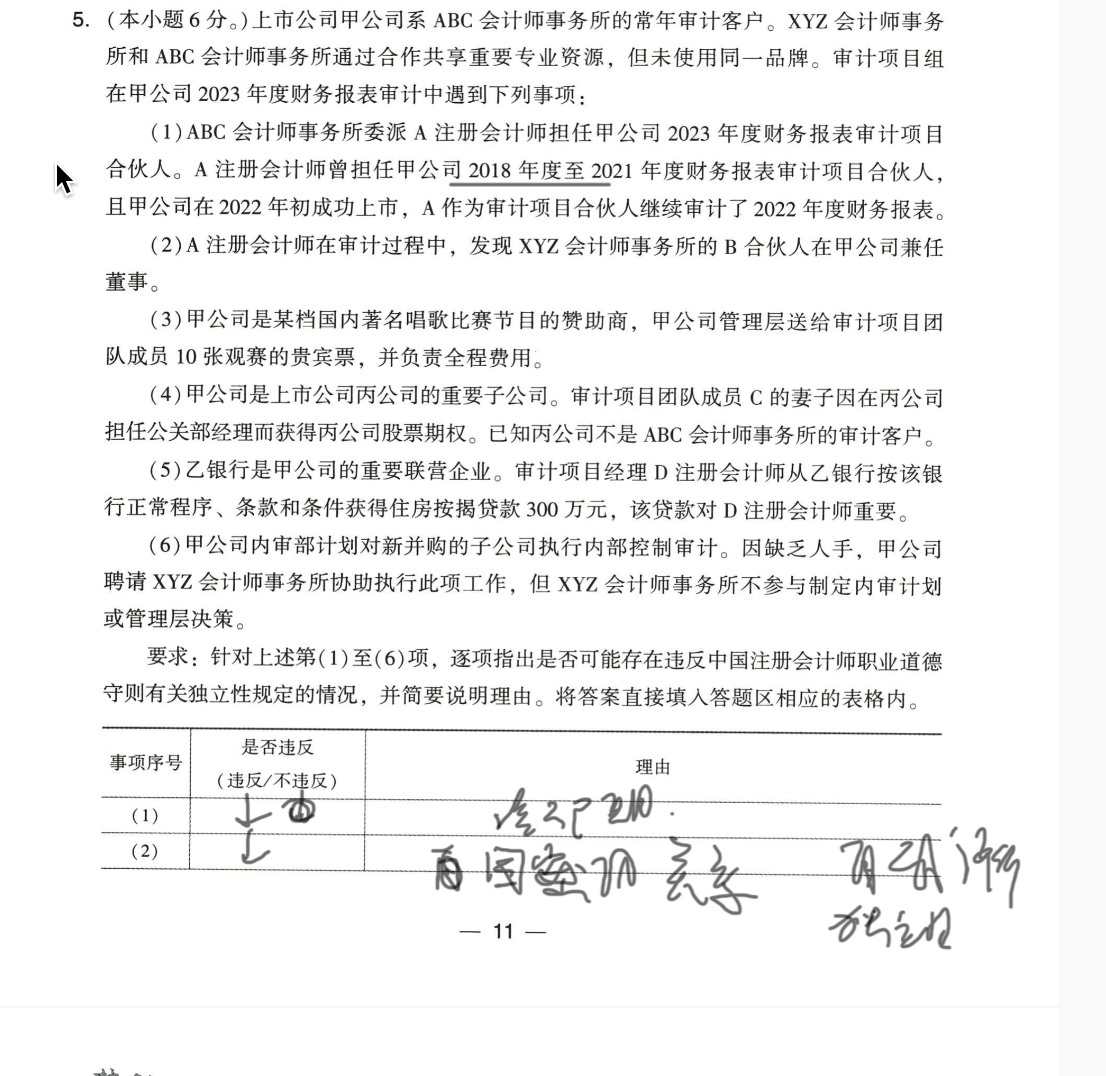 5. (本小题6分。)上市公司甲公司系 ABC 会计师事务所的常年审计客户。XYZ 会计师事务
所和 ABC 会计师事务所通过合作共享重要专业资源，但未使用同一品牌。审计项目组
在甲公司 2023 年度财务报表审计中遇到下列事项：
(1)ABC 会计师事务所委派 A 注册会计师担任甲公司 2023 年度财务报表审计项目
合伙人。A 注册会计师曾担任甲公司 2018 年度至 2021 年度财务报表审计项目合伙人，
且甲公司在 2022 年初成功上市，A 作为审计项目合伙人继续审计了 2022 年度财务报表。
(2)A 注册会计师在审计过程中，发现 XYZ 会计师事务所的 B 合伙人在甲公司兼任
董事。
(3)甲公司是某档国内著名唱歌比赛节目的赞助商，甲公司管理层送给审计项目团
队成员 10 张观赛的贵宾票，并负责全程费用。
(4)甲公司是上市公司丙公司的重要子公司。审计项目团队成员 C 的妻子因在丙公司
担任公关部经理而获得丙公司股票期权。已知丙公司不是 ABC 会计师事务所的审计客户。
(5)乙银行是甲公司的重要联营企业。审计项目经理 D 注册会计师从乙银行按该银
行正常程序、条款和条件获得住房按揭贷款 300 万元，该贷款对 D 注册会计师重要。
(6)甲公司内审部计划对新并购的子公司执行内部控制审计。因缺乏人手，甲公司
聘请 XYZ 会计师事务所协助执行此项工作，但 XYZ 会计师事务所不参与制定内审计划
或管理层决策。
要求：针对上述第(1)至(6)项，逐项指出是否可能存在违反中国注册会计师职业道德
守则有关独立性规定的情况，并简要说明理由。将答案直接填入答题区相应的表格内。
事项序号 是否违反 (违反/不违反) 理由
(1)
(2)
关系
独立性
— 11 —